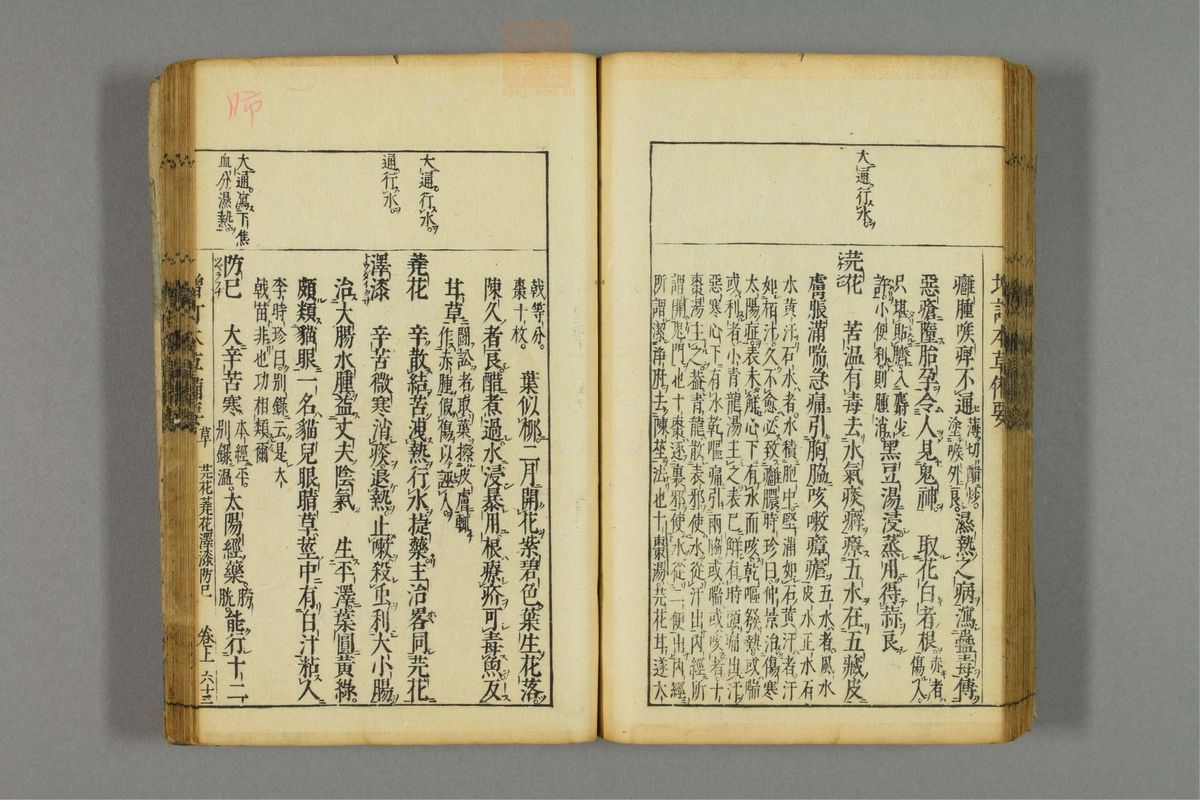 增訂本草備要
癰腫喉痺不通薄切醋炒塗喉外良濕熱之病瀉蠱毒傳
惡瘡墮胎孕令人見鬼神取花白者根赤者傷人
只堪貼臍入麝少許小便利則腫消黑豆湯浸蒸用得蒜良
大通行水
芫花苦温有毒去水氣痰癖療五水在五藏皮
膚脹滿喘急痛引胸脇咳嗽瘴瘧五水者風水皮水正水石
水黃汗水積胞中堅滿如石黃汗者汗
如栢汁久不愈必致癰膿時珍曰仲景治傷寒
太陽症表未解心下有水而咳乾嘔發熱或喘
或利者小青龍湯主之表已解有時頭痛出汗
惡寒心下有水乾嘔痛引兩脇或喘或咳者十
棗湯主之蓋青龍散表邪使水從汗出内經所
謂開鬼門也十棗逐裏邪使水從二便出内經
所謂潔淨府去陳莝法也十棗湯芫花甘遂大
戟等分棗十枚葉似柳二月開花紫碧色葉生花落
陳久者良醋煮過水浸暴用根療疥可毒魚反
甘草鬬訟者取葉擦皮膚輒作赤腫假傷以誣人
大通行水
蕘花辛散結苦洩熱行水捷藥主治畧同芫花
通行水
澤漆辛苦微寒消痰退熱止嗽殺虫利大小腸
治大腸水腫益丈夫陰氣生平澤葉圓黃綠
頗類貓眼一名貓兒眼睛草莖中有白汁粘人
李時珍曰别錄云是大戟苗非也功相類爾
大通瀉下焦血分濕熱
防已大辛苦寒本經平别錄温太陽經藥膀胱能行十二
增訂本草備要 草 芫花蕘花澤漆防已 卷上 六十三